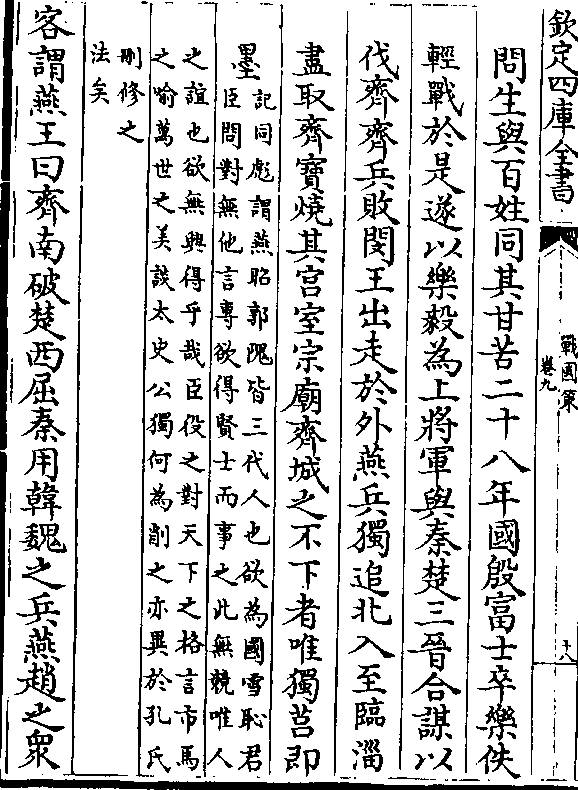 欽定四庫全書
戰國策
卷九
十八
問生與百姓同其甘苦二十八年國殷富士卒樂佚
輕戰於是遂以樂毅為上將軍與秦楚三晉合謀以
伐齊齊兵敗閔王出走於外燕兵獨追北入至臨淄
盡取齊寶燒其宮室宗廟齊城之不下者唯獨莒即
墨
記同彪謂燕昭郭隗皆三代人也欲為國雪恥君
臣問對無他言專欲得賢士而事之此無競唯人
之誼也欲無興得乎哉臣役之對天下之格言市馬
之喻萬世之美談太史公獨何為削之亦異於孔氏
刪修之
法矣
客謂燕王曰齊南破楚西屈秦用韓魏之兵燕趙之衆